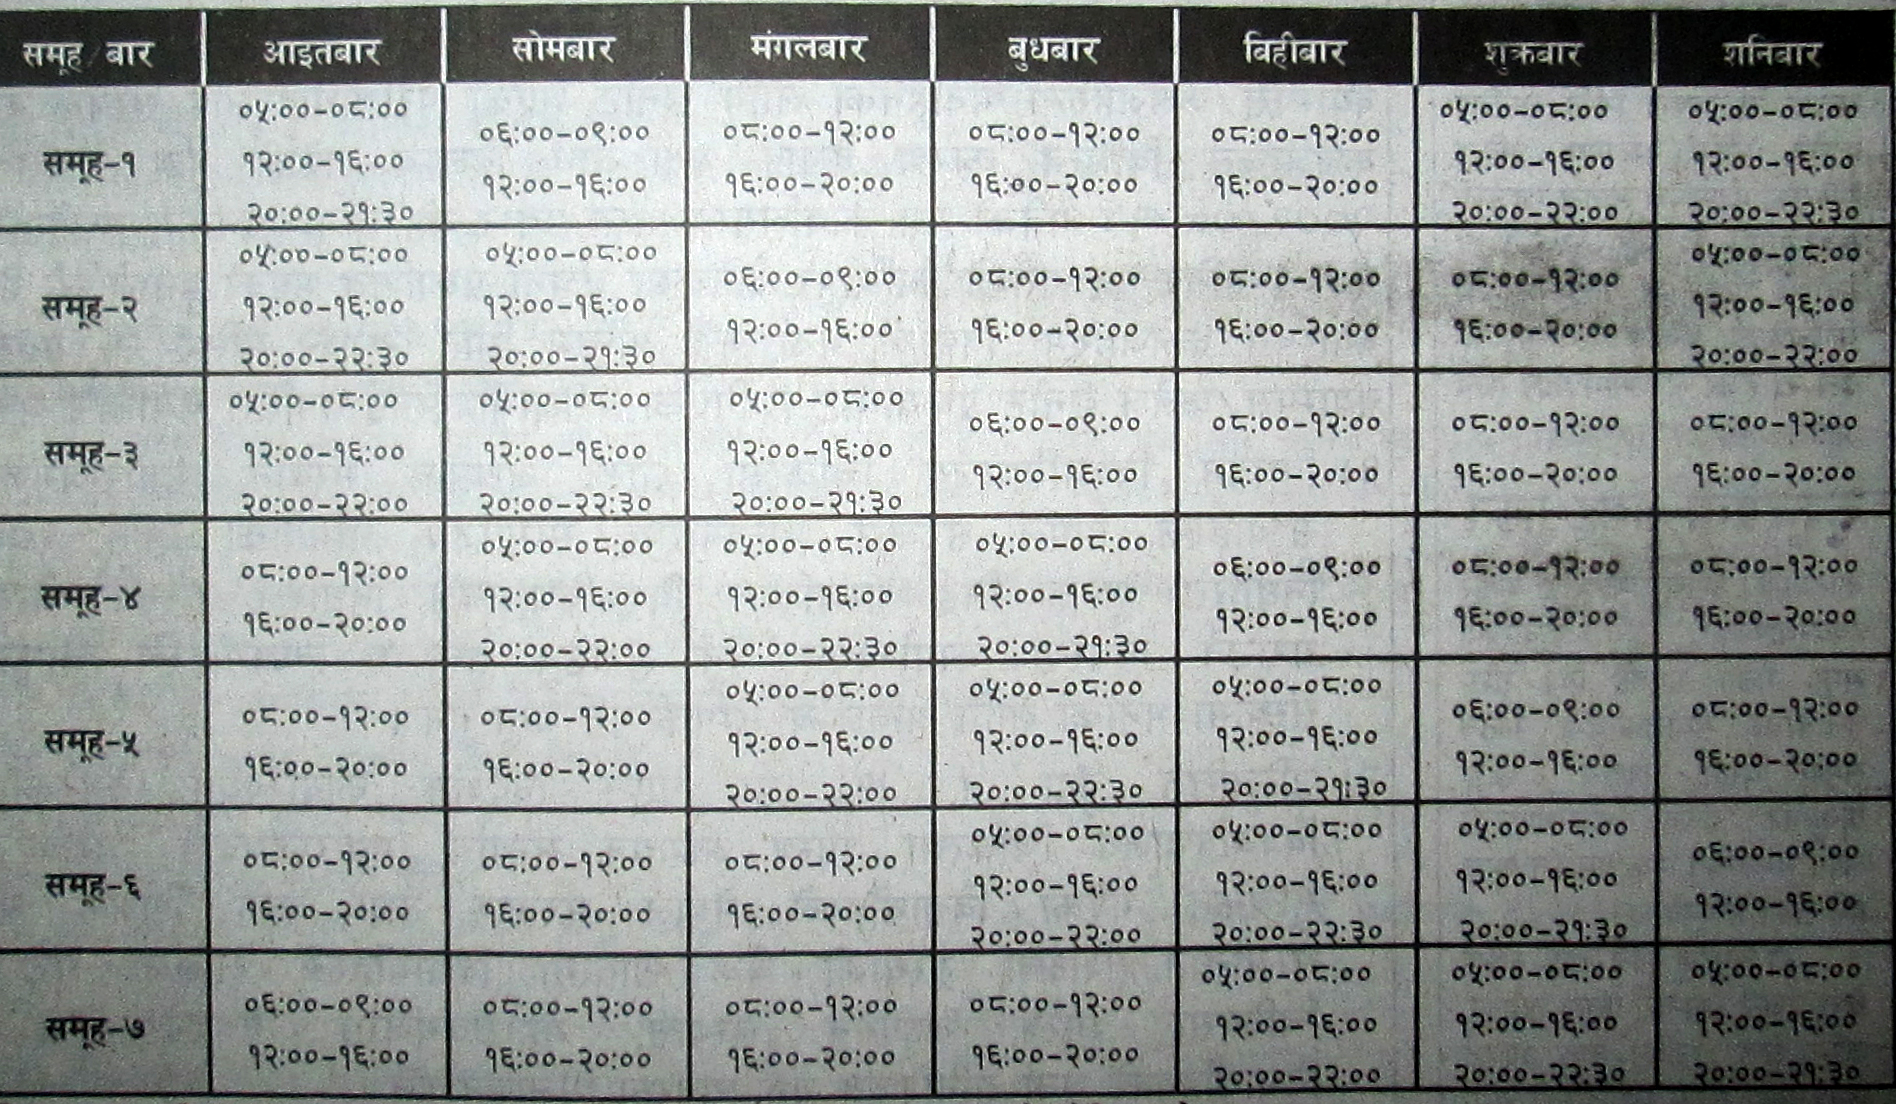 समूह/बार आइतबार सोमबार मंगलबार बुधबार बिहीबार शुक्रबार शनिबार
समूह-१
०५:००-०८:००
१२:००-१६:००
२०:००-२१:३०
०६:००-०९:००
१२:००-१६:००
०८:००-१२:००
१६:००-२०:००
०८:००-१२:००
१६:००-२०:००
०८:००-१२:००
१६:००-२०:००
०५:००-०८:००
१२:००-१६:००
२०:००-२२:००
०५:००-०८:००
१२:००-१६:००
२०:००-२२:३०
समूह-२
०५:००-०८:००
१२:००-१६:००
२०:००-२२:३०
०५:००-०८:००
१२:००-१६:००
२०:००-२१:३०
०६:००-०९:००
१२:००-१६:००
०८:००-१२:००
१६:००-२०:००
०८:००-१२:००
१६:००-२०:००
०८:००-१२:००
१६:००-२०:००
०५:००-०८:००
१२:००-१६:००
२०:००-२२:००
समूह-३
०५:००-०८:००
१२:००-१६:००
२०:००-२२:००
०५:००-०८:००
१२:००-१६:००
२०:००-२२:३०
०५:००-०८:००
१२:००-१६:००
२०:००-२१:३०
०६:००-०९:००
१२:००-१६:००
०८:००-१२:००
१६:००-२०:००
०८:००-१२:००
१६:००-२०:००
०८:००-१२:००
१६:००-२०:००
समूह-४
०८:००-१२:००
१६:००-२०:००
०५:००-०८:००
१२:००-१६:००
२०:००-२२:००
०५:००-०८:००
१२:००-१६:००
२०:००-२२:३०
०५:००-०८:००
१२:००-१६:००
२०:००-२१:३०
०६:००-०९:००
१२:००-१६:००
०८:००-१२:००
१६:००-२०:००
०८:००-१२:००
१६:००-२०:००
समूह-५
०८:००-१२:००
१६:००-२०:००
०८:००-१२:००
१६:००-२०:००
०५:००-०८:००
१२:००-१६:००
२०:००-२२:००
०५:००-०८:००
१२:००-१६:००
२०:००-२२:३०
०५:००-०८:००
१२:००-१६:००
२०:००-२१:३०
०६:००-०९:००
१२:००-१६:००
०८:००-१२:००
१६:००-२०:००
समूह-६
०८:००-१२:००
१६:००-२०:००
०८:००-१२:००
१६:००-२०:००
०८:००-१२:००
१६:००-२०:००
०५:००-०८:००
१२:००-१६:००
२०:००-२२:००
०५:००-०८:००
१२:००-१६:००
२०:००-२२:३०
०५:००-०८:००
१२:००-१६:००
२०:००-२१:३०
०६:००-०९:००
१२:००-१६:००
समूह-७
०६:००-०९:००
१२:००-१६:००
०८:००-१२:००
१६:००-२०:००
०८:००-१२:००
१६:००-२०:००
०८:००-१२:००
१६:००-२०:००
०५:००-०८:००
१२:००-१६:००
२०:००-२२:००
०५:००-०८:००
१२:००-१६:००
२०:००-२२:३०
०५:००-०८:००
१२:००-१६:००
२०:००-२१:३०